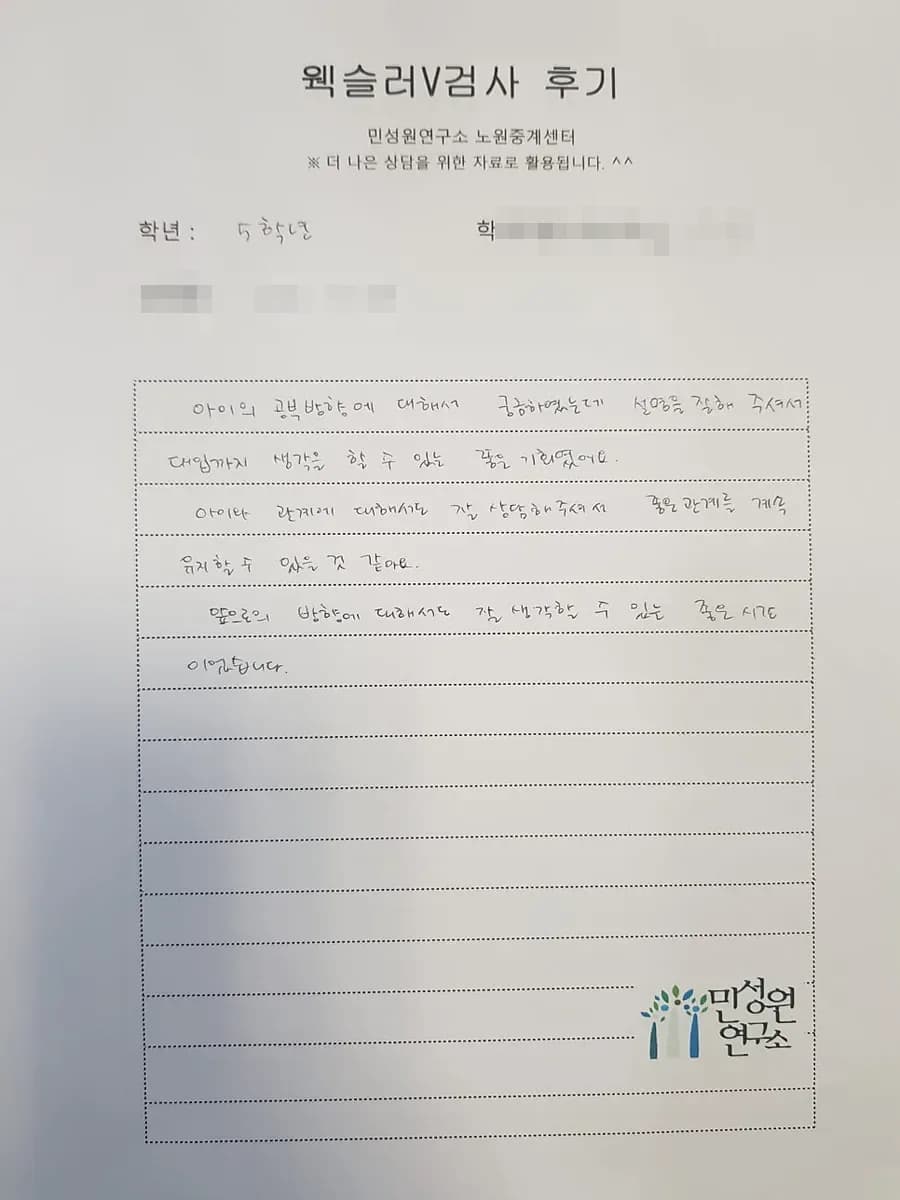 웩슬러V검사 후기
민성원연구소 노원중계센터
※ 더 나은 상담을 위한 자료로 활용됩니다. ^^
학년 : 5학년 학
아이의 공부방향에 대해서 궁금하였는데 설명을 잘해 주셔서
대입까지 생각을 할 수 있는 좋은 기회였어요.
아이와 관계에 대해서도 잘 상담해주셔서 좋은관계를 계속
유지할 수 있을 것 같아요.
앞으로의 방향에 대해서도 잘 생각할 수 있는 좋은 시간
이었습니다.
민성원
연구소